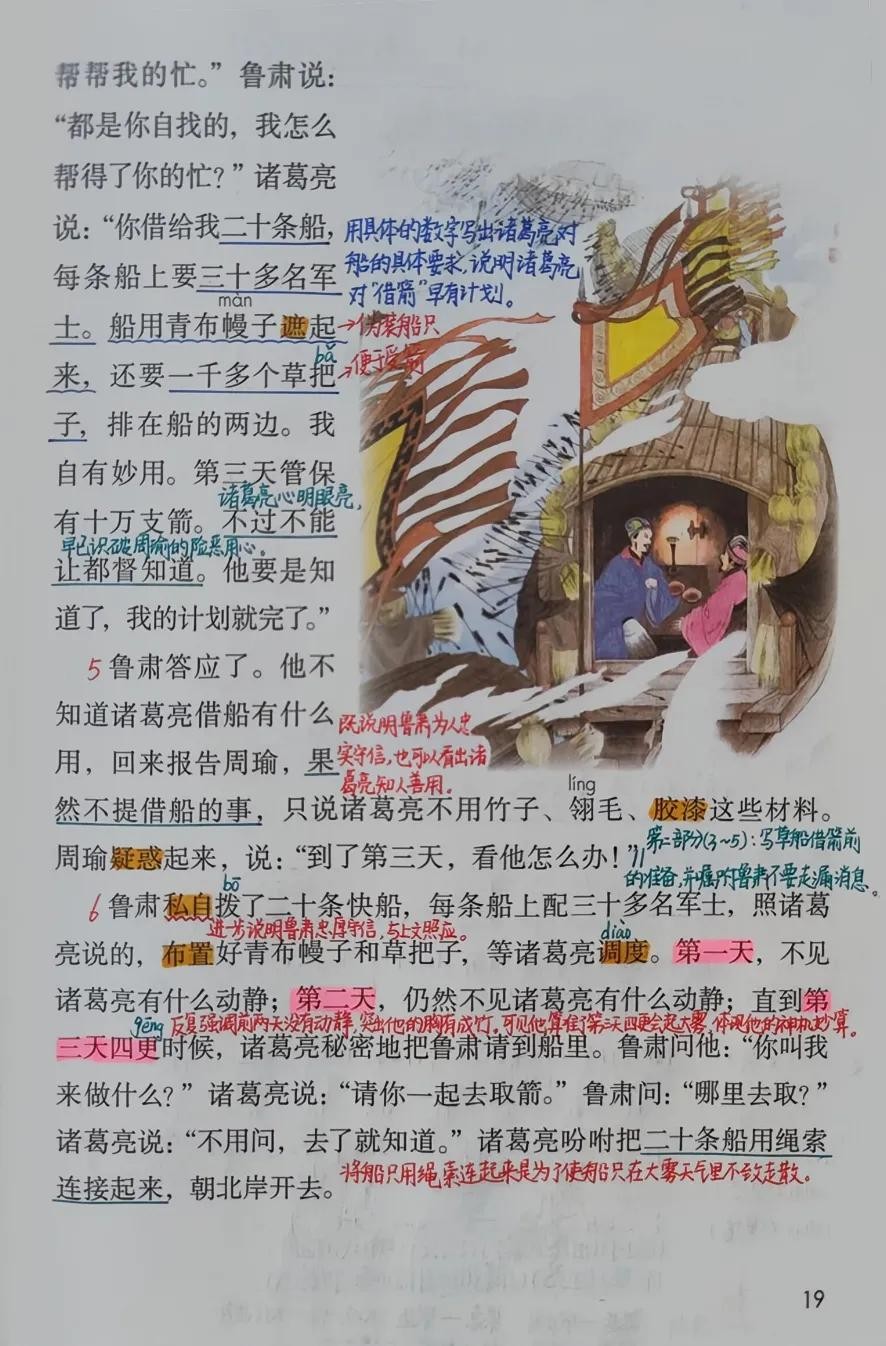 帮帮我的忙。”鲁肃说：
“都是你自找的，我怎么
帮得了你的忙？”诸葛亮
说：“你借给我二十条船，
用具体的数字写出诸葛亮对
船的具体要求，说明诸葛亮
对“借箭”早有计划。
每条船上要三十多名军
màn
士。船用青布幔子遮起
→伪装船只
bǎ
来，还要一千多个草把
→便于受箭
子，排在船的两边。我
自有妙用。第三天管保
诸葛亮心明眼亮，
有十万支箭。不过不能
早已识破周瑜的险恶用心。
让都督知道。他要是知
道了，我的计划就完了。”
5 鲁肃答应了。他不
知道诸葛亮借船有什么
用，回来报告周瑜，果
既说明鲁肃为人忠
实守信，也可以看出诸
葛亮知人善用。
líng
然不提借船的事，只说诸葛亮不用竹子、翎毛、胶漆这些材料。
周瑜疑惑起来，说：“到了第三天，看他怎么办！”//
第二部分(3~5)：写草船借箭前
的准备，并嘱咐鲁肃不要走漏消息。
bō
6 鲁肃私自拨了二十条快船，每条船上配三十多名军士，照诸葛
进一步说明鲁肃忠厚守信，与上文照应。
diào
亮说的，布置好青布幔子和草把子，等诸葛亮调度。第一天，不见
诸葛亮有什么动静；第二天，仍然不见诸葛亮有什么动静；直到第
gēng
反复强调前两天没有动静，突出他的胸有成竹。可见他算准了第三天四更会起大雾，体现他的神机妙算。
三天四更时候，诸葛亮秘密地把鲁肃请到船里。鲁肃问他：“你叫我
来做什么？”诸葛亮说：“请你一起去取箭。”鲁肃问：“哪里去取？”
诸葛亮说：“不用问，去了就知道。”诸葛亮吩咐把二十条船用绳索
连接起来，朝北岸开去。
将船只用绳索连起来是为了使船只在大雾天气里不致走散。
19